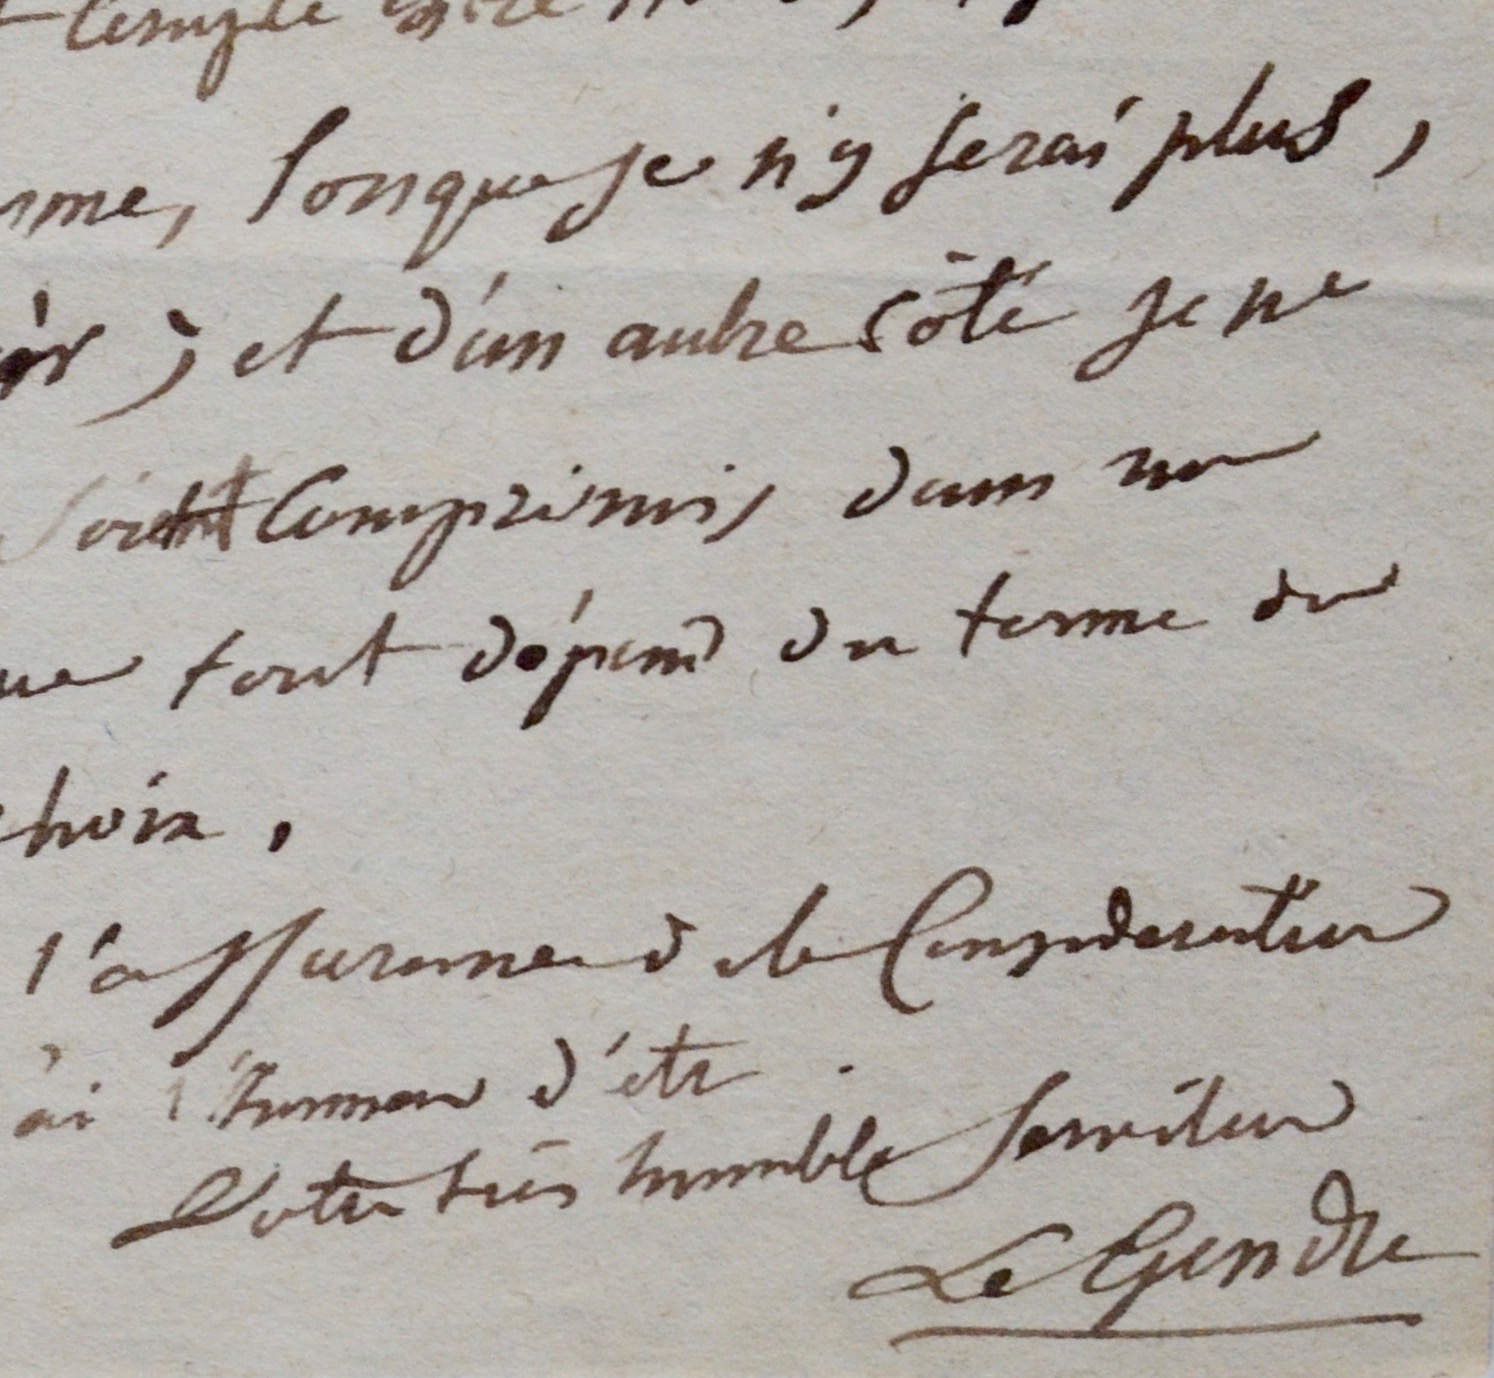 nme, lorsque je n'y serai plus,
; et d'un autre côté je ne
Soient Comprimis dans un
ue tout dépend du terme du
hoix.
l'assurance de la Consideration
ai l'honneur d'etre
Votre très humble Serviteur
Le Gendre